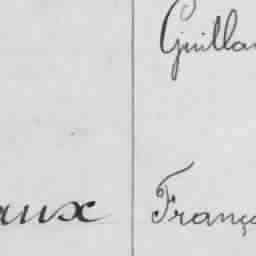 Guilla
aux Franç